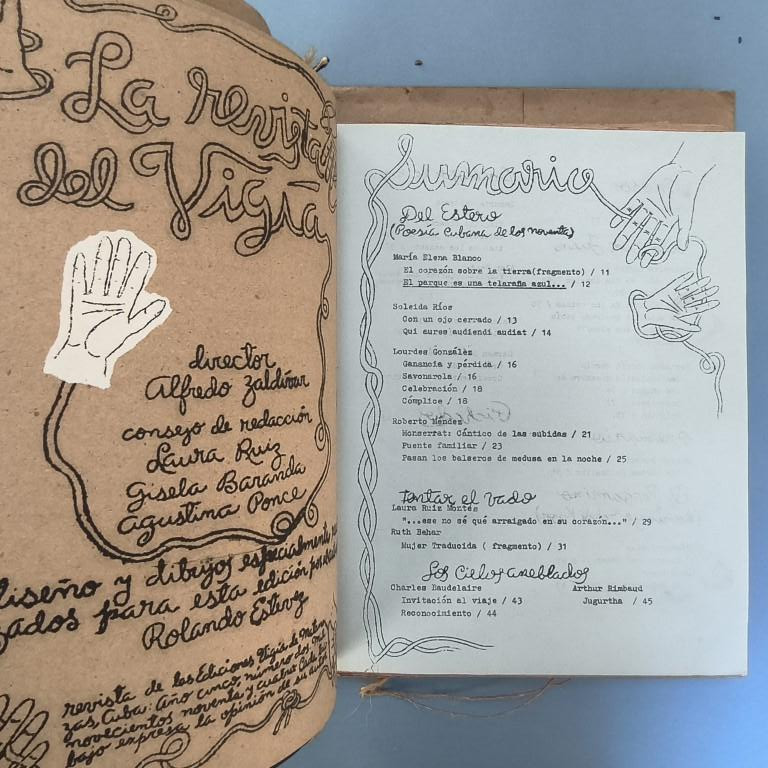 La revista
del Vigía
director
Alfredo Zaldívar
consejo de redacción
Laura Ruiz
Gisela Baranda
Agustina Ponce
diseño y dibujos especialmente
para esta edición por
Rolando Estévez
revista de las Ediciones Vigía de Matan
zas, Cuba. Año cinco, número dos. Mil
novecientos noventa y cuatro. Cada
bajo expresa la opinión de su autor
Sumario
Del Estero
(Poesía Cubana de los noventa)
María Elena Blanco
El corazón sobre la tierra(fragmento) / 11
El parque es una telaraña azul... / 12
Soleida Ríos
Con un ojo cerrado / 13
Qui aures audiendi audiat / 14
Lourdes González
Ganancia y pérdida / 16
Savonarola / 16
Celebración / 18
Cómplice / 18
Roberto Méndez
Monserrat: Cántico de las subidas / 21
Fuente familiar / 23
Pasan los balseros de medusa en la noche / 25
Tentar el vado
Laura Ruiz Montes
"...ese no sé qué arraigado en su corazón..." / 29
Ruth Behar
Mujer Traducida ( fragmento) / 31
Los Cielos aneblados
Charles Baudelaire Arthur Rimbaud
Invitación al viaje / 43 Jugurtha / 45
Reconocimiento / 44